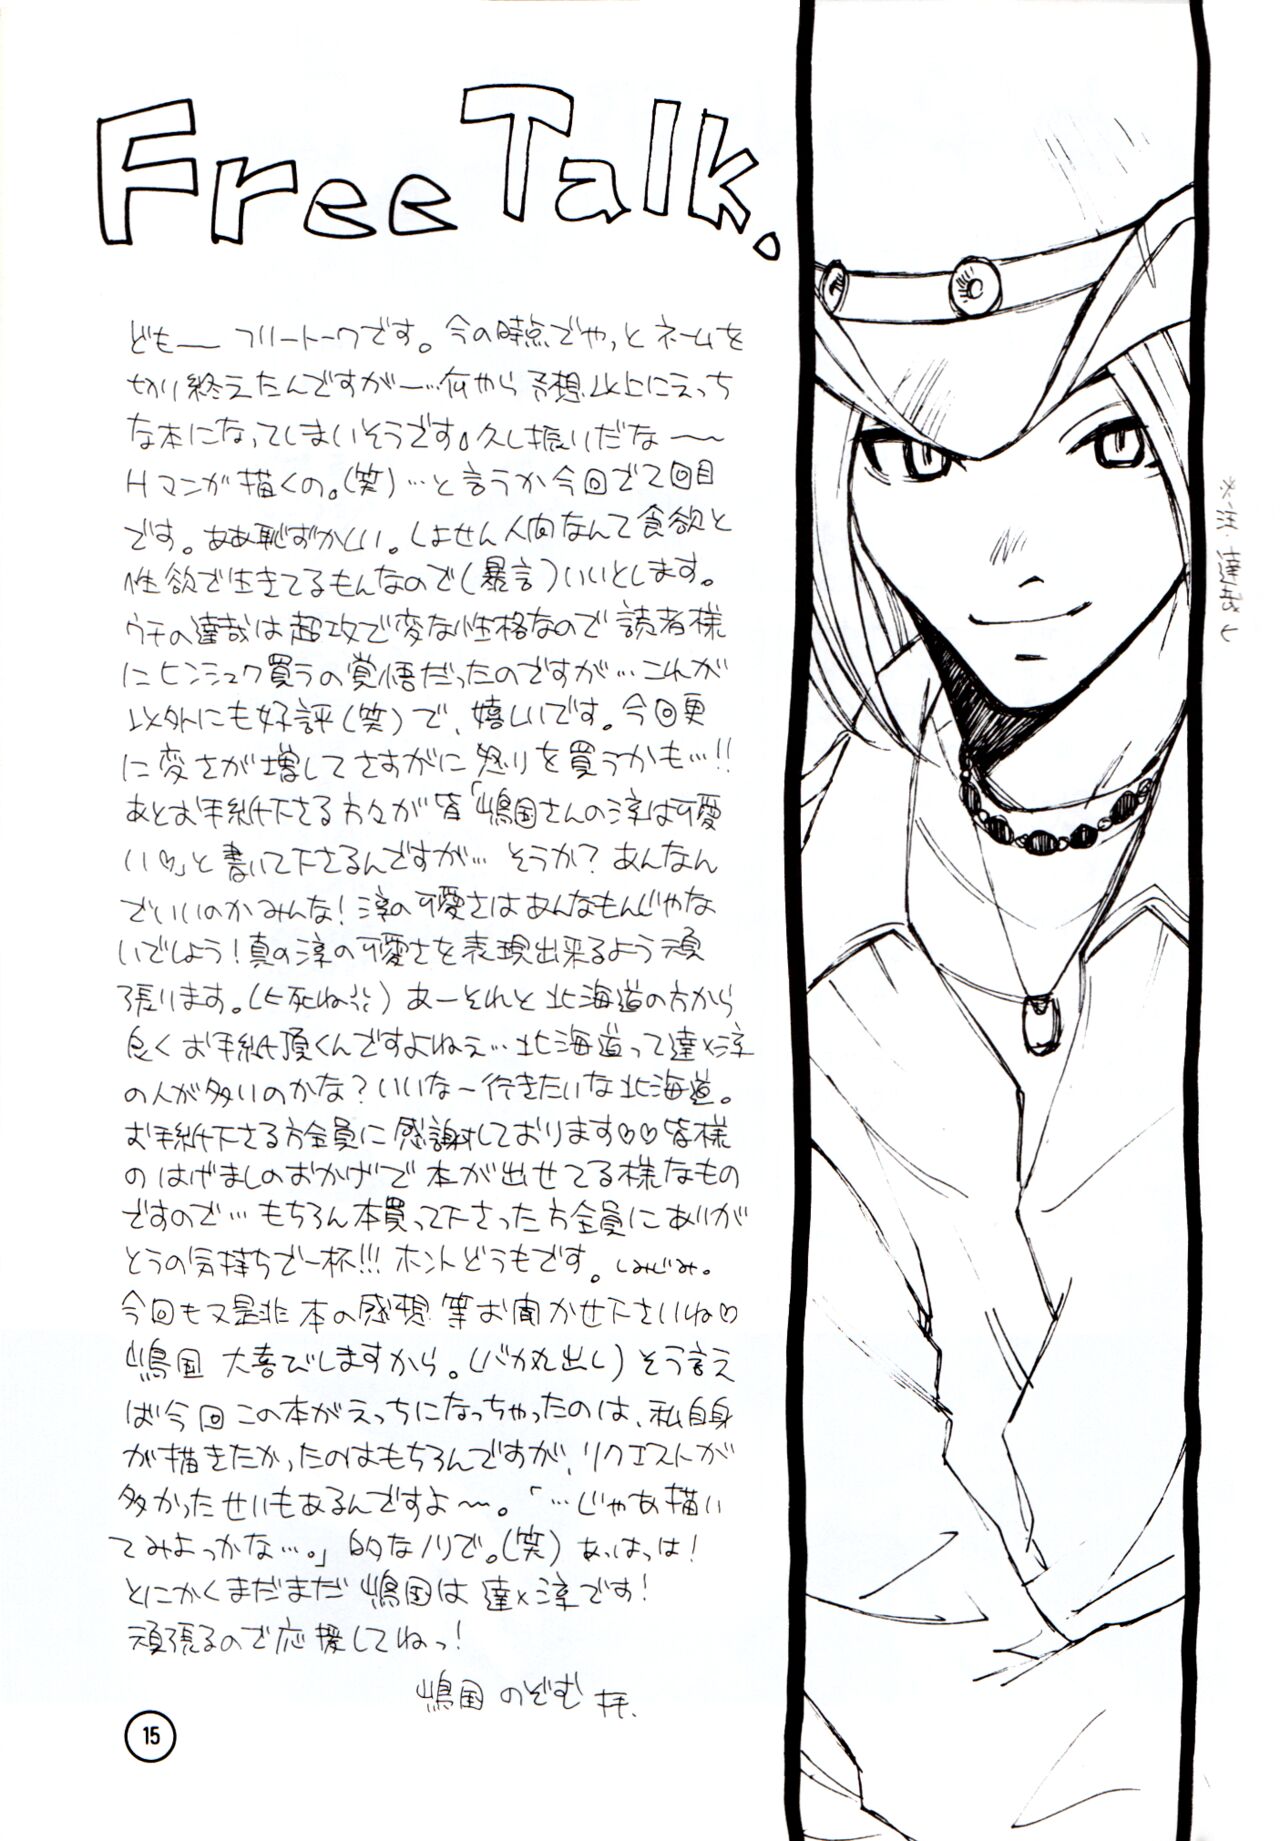 Free Talk.
どもー フリートークです。今の時点でやっとネームを
切り終えたんですがー…何やら予想以上にえっち
な本になってしまいそうです。久し振りだな〜
Hマンガ描くの。(笑)…と言うか今回で2回目
です。ああ恥ずかしい。しょせん人間なんて食欲と
性欲で生きてるもんなので(暴言)いいとします。
ウチの達哉は超攻で変な性格なので読者様
にヒンシュク買うの覚悟だったのですが…これが
以外にも好評(笑)で、嬉しいです。今回更
に変さが増してさすがに怒りを買うかも…!!
あとお手紙下さる方々が皆「嶋国さんの淳は可愛
い♡」と書いて下さるんですが… そうか?あんなん
でいいのかみんな!淳の可愛さはあんなもんじゃな
いでしょう!真の淳の可愛さを表現出来るよう頑
張ります。(と死ね) あーそれと北海道の方から
良くお手紙頂くんですよねぇ…北海道って達×淳
の人が多いのかな?いいなー行きたいな北海道。
お手紙下さる方全員に感謝しております♡♡皆様
のはげましのおかげで本が出せてる様なもの
ですので…もちろん本買って下さった方全員にありが
とうの気持ちで一杯!!!ホントどうもです。しみじみ。
今回も又是非本の感想等お聞かせ下さいね♡
嶋国 大喜びしますから。(バカ丸出し)そう言え
ば今回この本がえっちになっちゃったのは、私自身
が描きたかったのはもちろんですが、リクエストが
多かったせいもあるんですよ〜。「…じゃあ描い
てみよっかな…。」的なノリで。(笑) あっはっは!
とにかくまだまだ嶋国は達×淳です!
頑張るので応援してねっ!
嶋国 のぞむ 拝.
※注・達哉
15